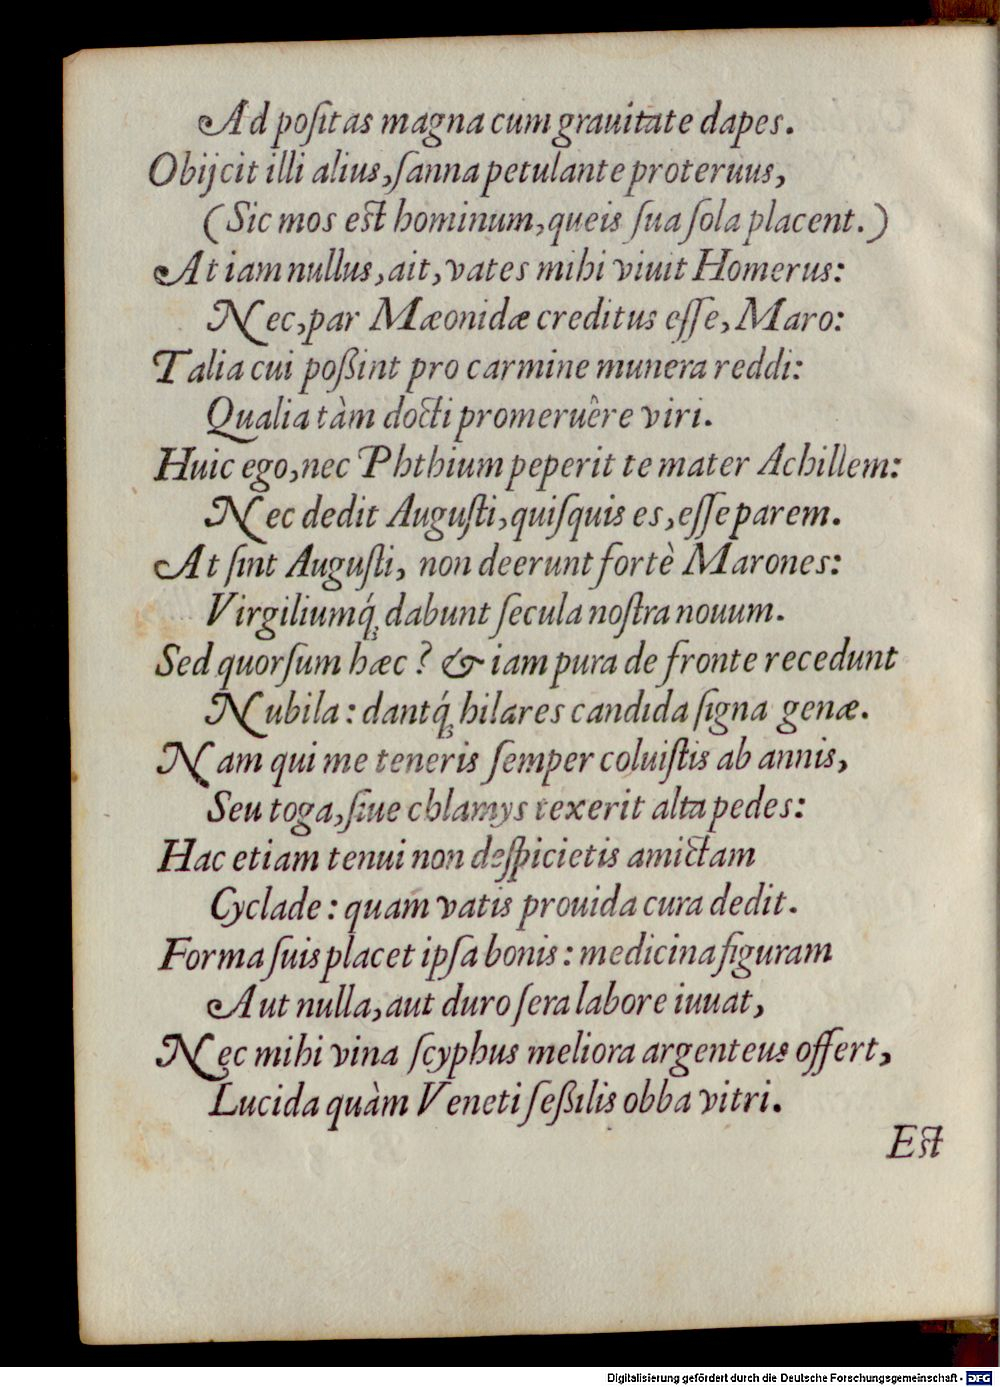 Ad poſitas magna cum grauitate dapes.
Obijcit illi alius, ſanna petulante proteruus,
(Sic mos eſt hominum, queis ſua ſola placent.)
At iam nullus, ait, vates mihi viuit Homerus:
Nec, par Mæonidæ creditus eſſe, Maro:
Talia cui poßint pro carmine munera reddi:
Qualia tàm docti promeruêre viri.
Huic ego, nec Phthium peperit te mater Achillem:
Nec dedit Auguſti, quiſquis es, eſſe parem.
At ſint Auguſti, non deerunt fortè Marones:
Virgiliumq́ꝫ dabunt ſecula noſtra nouum.
Sed quorſum hæc? & iam pura de fronte recedunt
Nubila: dantq́ꝫ hilares candida ſigna genæ.
Nam qui me teneris ſemper coluiſtis ab annis,
Seu toga, ſiue chlamys texerit alta pedes:
Hac etiam tenui non deſpicietis amictam
Cyclade: quam vatis prouida cura dedit.
Forma ſuis placet ipſa bonis: medicina figuram
Aut nulla, aut duro ſera labore iuuat,
Nec mihi vina ſcyphus meliora argenteus offert,
Lucida quàm Veneti ſeßilis obba vitri.
Eſt
Digitalisierung gefördert durch die Deutsche Forschungsgemeinschaft - DFG